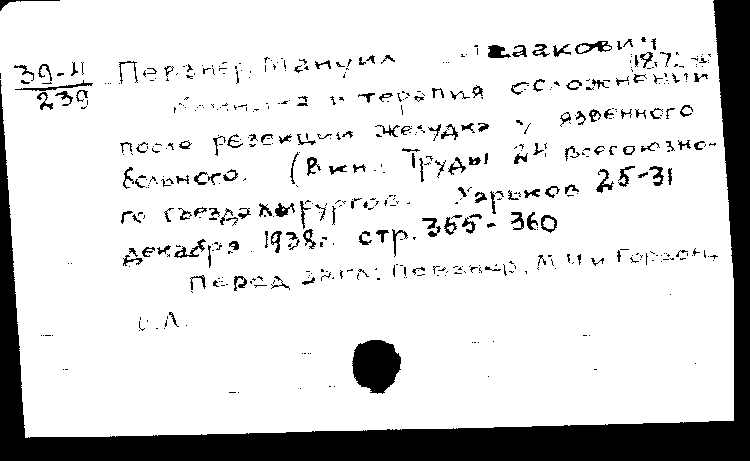 39-4 Певзнер, Мануил Исаакович
239 (1872-
Клиника и терапия осложнений
после резекции желудка у язвенного
больного. (В кн.: Труды 24 всесоюзно-
го съезда хирургов. Харьков 25-31
декабря 1938г. стр. 355-360
Перед загл: Певзнер, М И и Гордон,
О.Л.